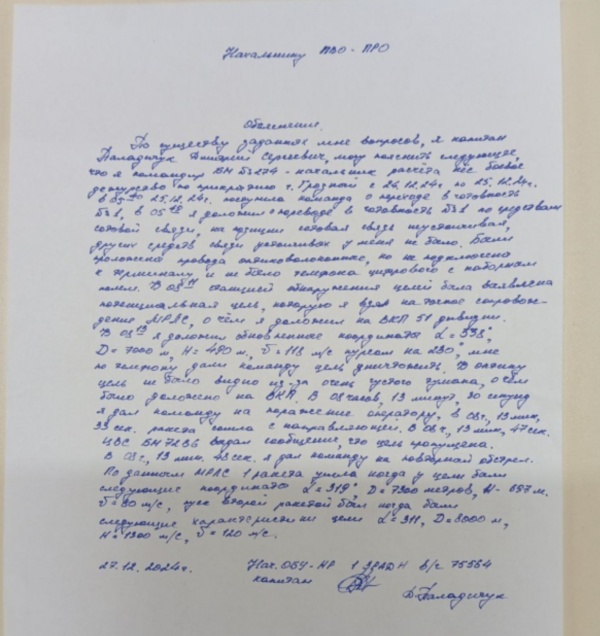 Начальнику ПВО - ПРО
Объяснение.
По существу заданных мне вопросов, я капитан
Паладичук Дмитрий Сергеевич, могу пояснить следующее,
что я командир БМ 72В6 - начальник расчета нёс боевое
дежурство по прикрытию г. Грозный с 24.12.24г. по 25.12.24г.
в 05 25.12.24г. поступила команда о переходе в готовность
№1, в 05 я доложил о переводе в готовность №1 по средствам
сотовой связи, на позиции сотовая связь неустойчивая,
других средств связи устойчивых у меня не было. Были
проложены провода оптиковолоконные, но не подключена
к терминалу и не было телефона цифрового с наборным
полем. В 08 11 станцией обнаружения целей была выявлена
потенциальная цель, которую я взял на точное сопровож-
дение МРЛС, о чём я доложил на ВКП 51 дивизии.
В 08 13 я доложил обновленные координаты
D = 7000 м, H = 490 м, V = 113 м/с курсом на мне
по телефону дали команду цель уничтожить. В оптику
цель не было видно из-за очень густого тумана, о чём
было доложено на ВКП. В 08 часов, 13 минут, 30 секунд
я дал команду на поражение оператору, в 08ч, 13 мин,
33 сек. ракета сошла с направляющей. В 08ч, 13 мин, 47 сек.
ЦВС БМ 72В6 выдал сообщение, что цель пропущена.
В 08ч., 13 мин. 48 сек. я дал команду на повторный обстрел.
По данным МРЛС 1 ракета ушла когда у цели были
следующие координаты L = 319°, D = 7300 метров, H - м.
V = 90 м/с, пуск второй ракетой был когда были
следующие характеристики цели L = 311, D = 8000 м,
H = 1300 м/с, V = 120 м/с.
27.12.2024г. Нач. 1 ЗРАДН в/ч 75564
капитан Д. Паладичук